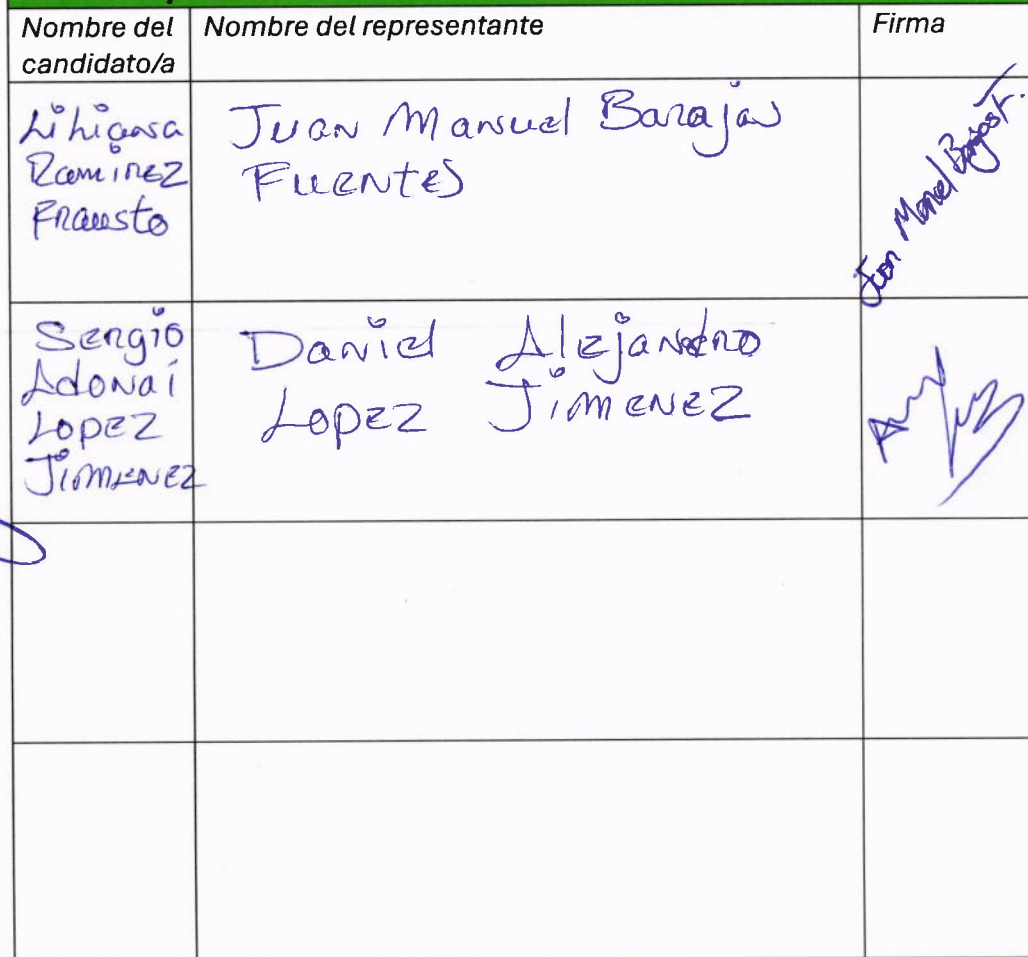 Nombre del candidato/a
Nombre del representante
Firma
Liliana
Ramirez
Frausto
Juan Manuel Barajas
Fuentes
Juan Manuel Barajas F.
Sergio
Adonaí
Lopez
Jimenez
Daniel Alejandro
Lopez Jimenez